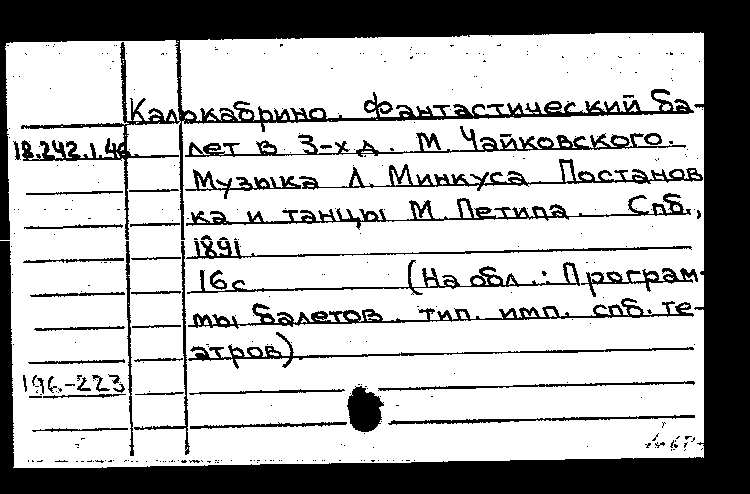 Калькабрино. Фантастический ба-
18.242.1.46. лет в 3-х д. М. Чайковского.
Музыка Л. Минкуса Постанов
ка и танцы М. Петипа. Спб.,
1891.
16с (На обл.: Програм-
мы балетов. тип. имп. спб. те-
атров).
196-223